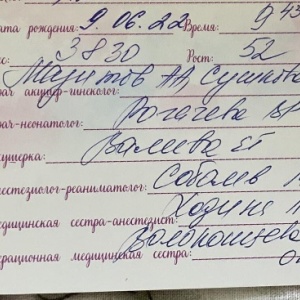 ата рождения: 9.06.22 Время: 9 45
с: 3830 Рост: 52
Мацитов АА Сушкова
рач акушер-гинеколог:
рач-неонатолог: Рогачева
ушерка: Валеева
естезиолог-реаниматолог: Соболев
едицинская сестра-анестезист: Ходина
ерационная медицинская сестра: Волокошнева